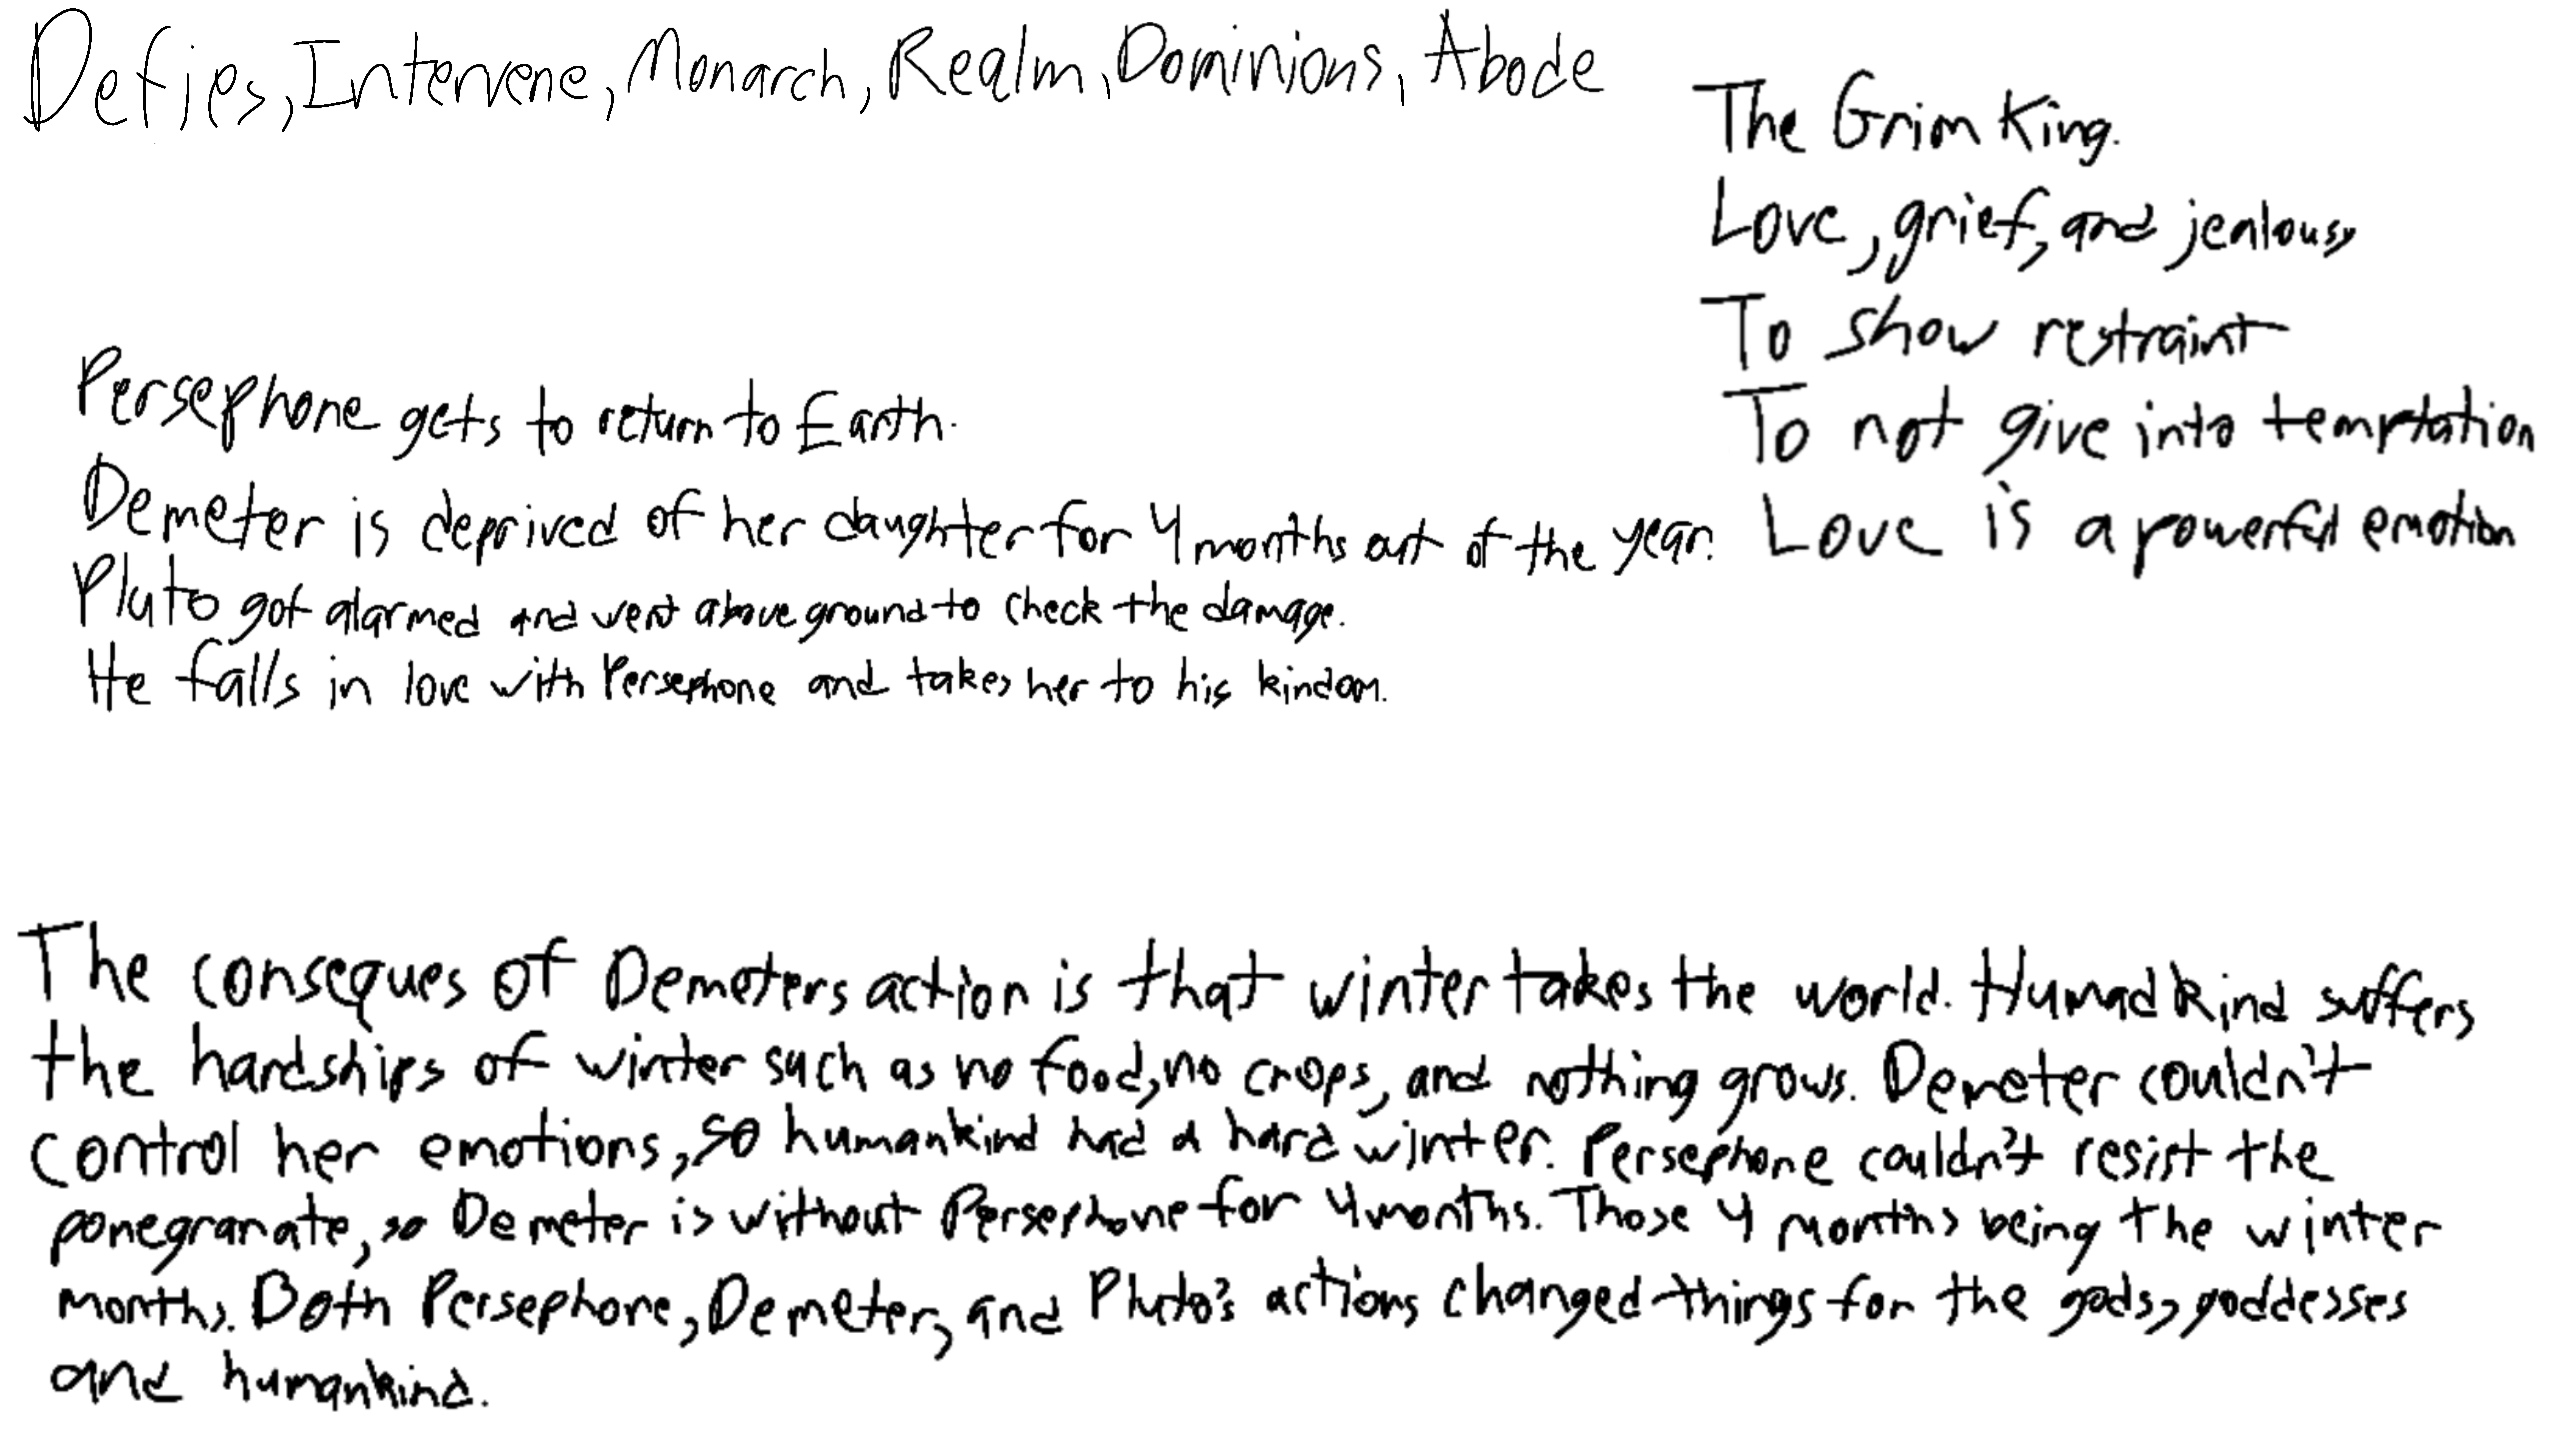 Defies, Intervene, Monarch, Realm, Dominions, Abode
The Grim King.
Love, grief, and jealousy
To show restraint
To not give into temptation
Love is a powerful emotion
Persephone gets to return to Earth.
Demeter is deprived of her daughter for 4 months out of the year.
Pluto got alarmed and went above ground to check the damage.
He falls in love with Persephone and takes her to his kindom.
The conseques of Demeters action is that winter takes the world. Humadkind suffers
the hardships of winter such as no food, no crops, and nothing grows. Demeter couldn't
control her emotions, so humankind had a hard winter. Persephone couldn't resist the
ponegranate, so Demeter is without Persephone for 4 months. Those 4 months being the winter
months. Both Persephone, Demeter, and Pluto's actions changed things for the gods, goddesses
and humankind.